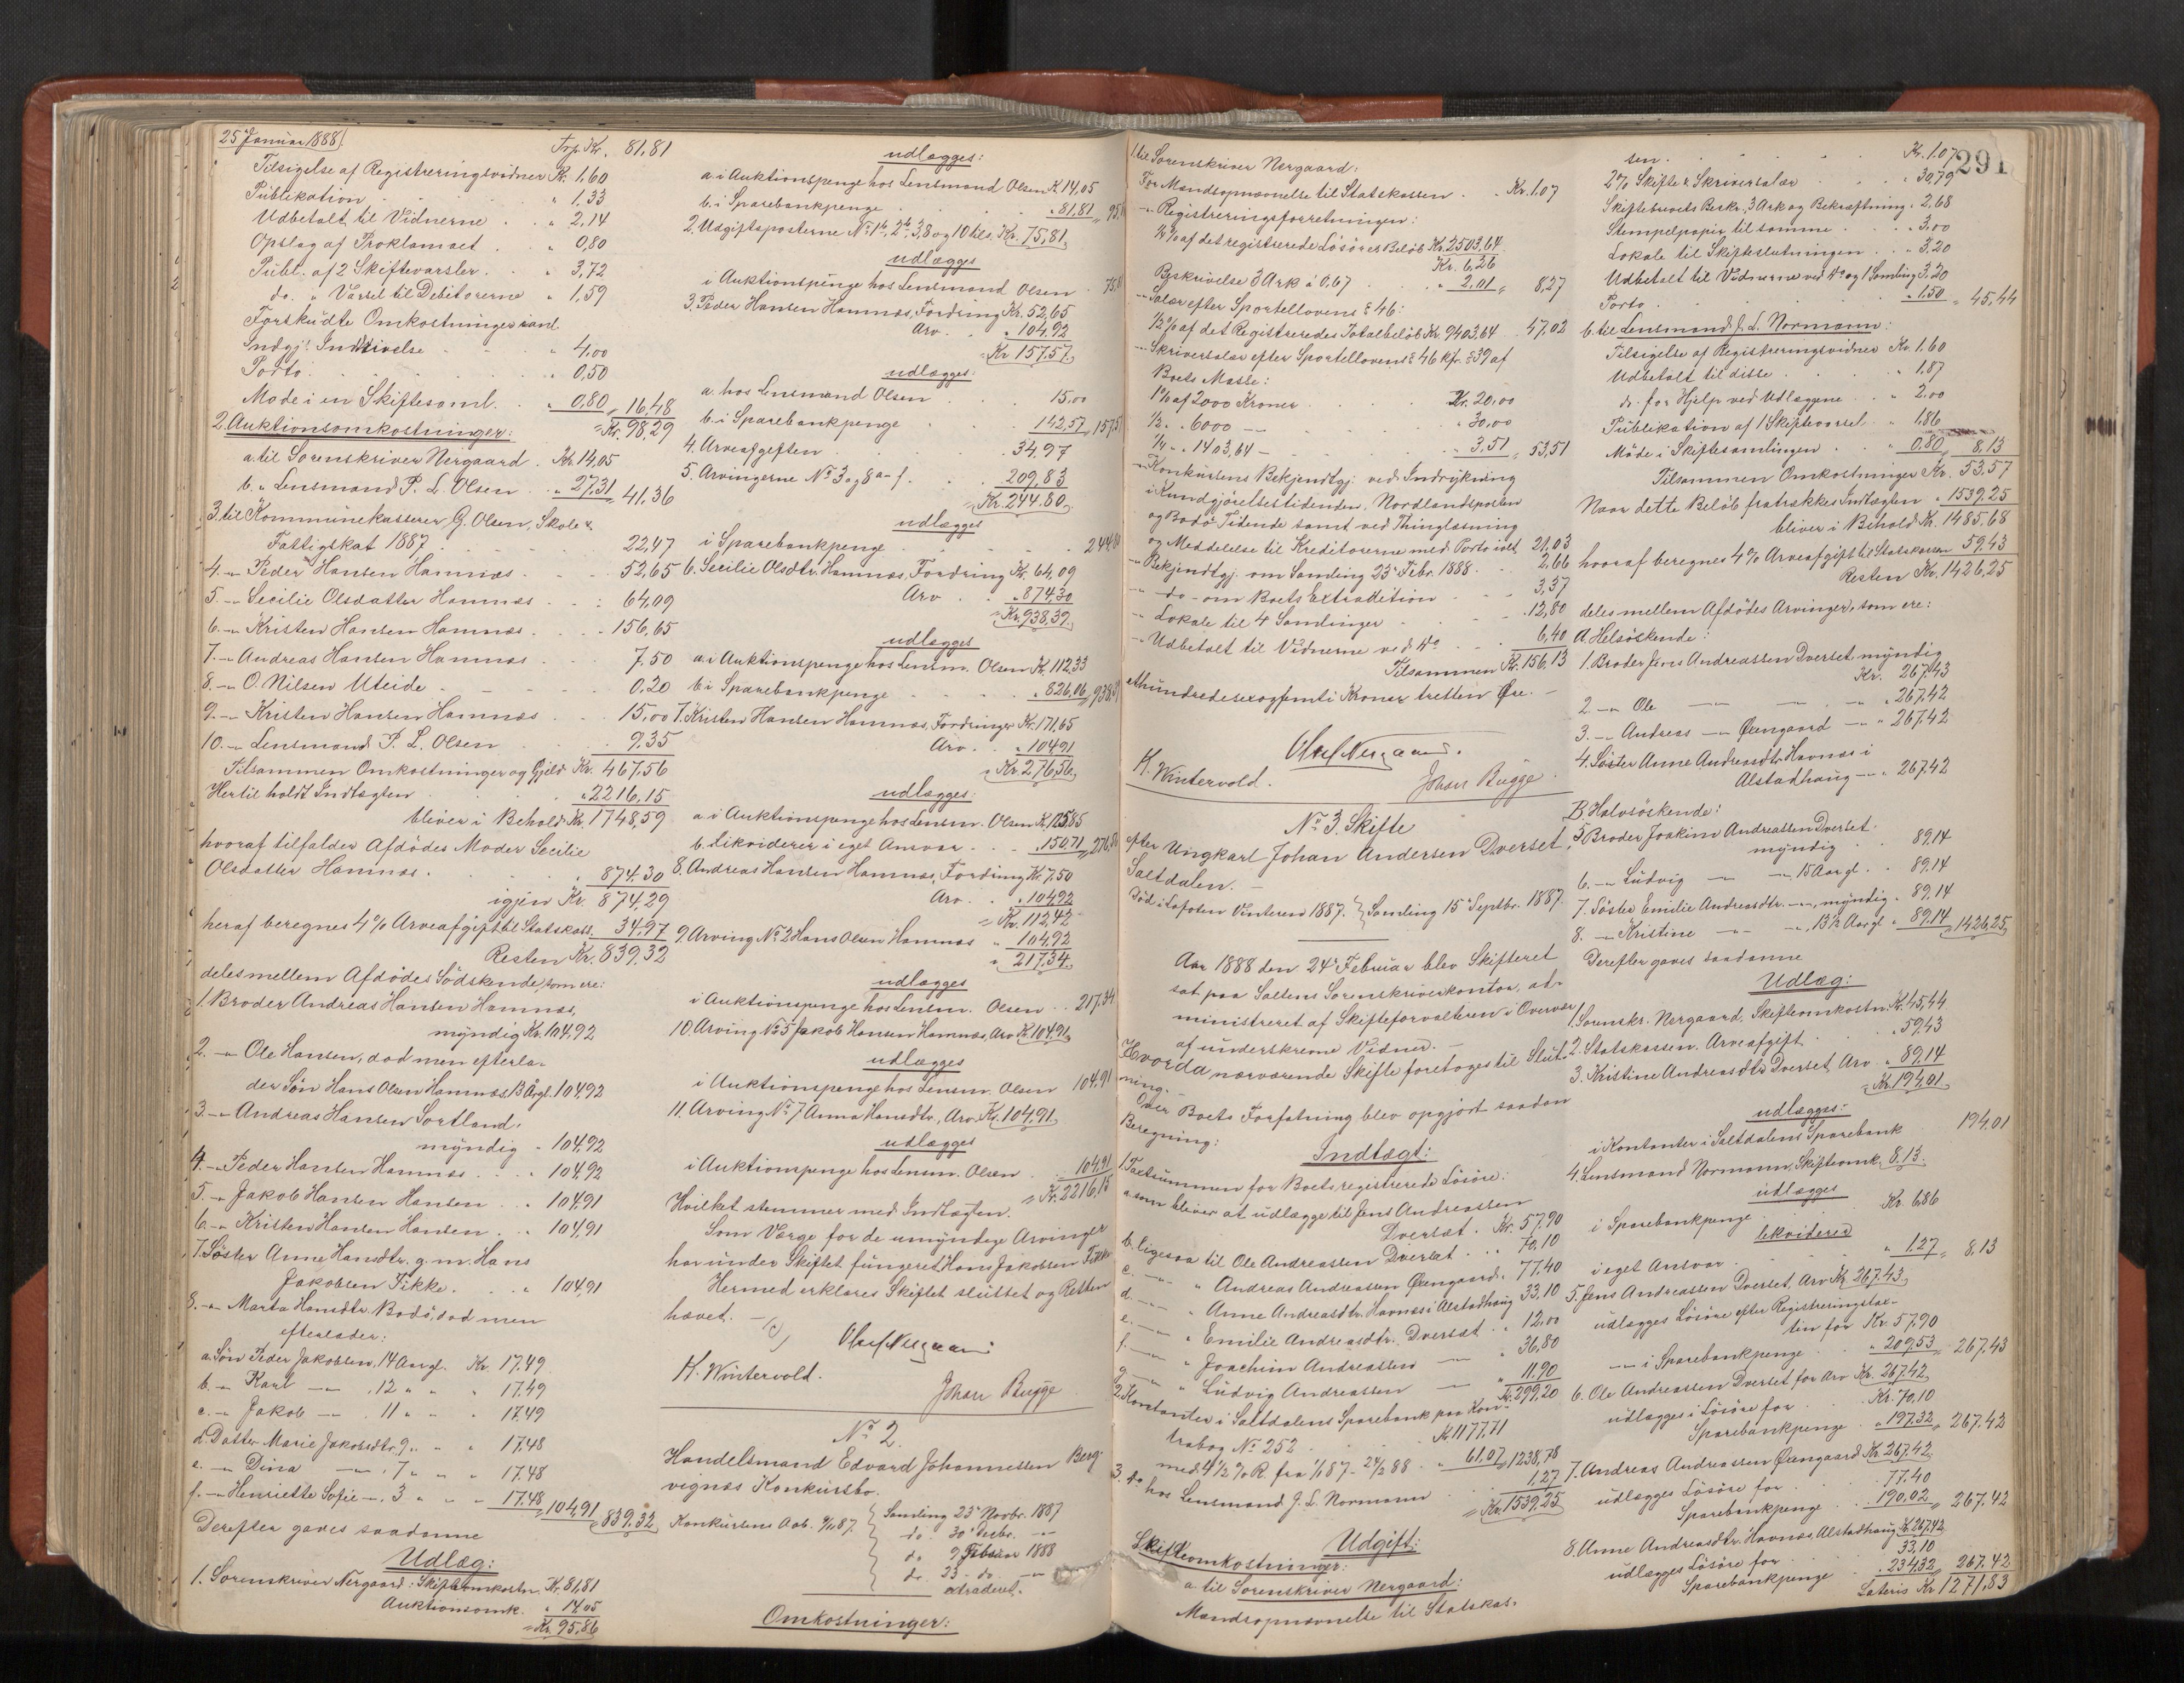 25 Januar 1888.
Trp. Kr. 81,81
Tilsigelse af Registreringsvidner Kr. 1,60
Publikation . . " 1,33
Udbetalt til Vidnerne . . " 2,14
Opslag af Proklamaet . " 0,80
Publ. af 2 Skiftevarsler . . " 3,72
do. " Varsel til Debitorerne " 1,59
Forskudte Omkostninger
Indgj.
" 4,00
Porto . . " 0,50
Møde i en Skiftesaml. . " 0,80 = 16,48
= Kr. 98,29
2. Auktionsomkostninger:
a. til Sorenskriver Nergaard . Kr. 14,05
b. " Lensmand P. L. Olsen . . " 27,31 = 41,36
3. til Kommunekasserer G. Olsen, Skole &
Fattigskat 1887 . . 22,47
4. -"- Peder Hansen Hamnæs . . . 52,65
5. -"- Secilie Olsdatter Hamnæs . . : 64,09
6. -"- Kristen Hansen Hamnæs . . . 156,65
7. -"- Andreas Hansen Hamnæs . . 7,50
8. -"- O. Nilsen Uteide . - - - 0,20
9. -"- Kristen Hansen Hamnæs . . . 15,00
10. -"- Lensmand P. L. Olsen . . . 9,35
Tilsammen Omkostninger og Gjeld Kr. 467,56
Hertil holdt Indtægten . . " 2216,15
bliver i Behold Kr. 1748,59
hvoraf tilfalder Afdødes Moder Secilie
Olsdatter Hamnæs . . " 874,30
igjen Kr. 874,29
heraf beregnes 4 % Arveafgift til Statskass. 34,97
Resten Kr. 839,32
deles mellem Afdødes Södskende, som ere:
1. Broder Andreas Hansen Hamnæs,
myndig Kr. 104,92
2. -"- Ole Hansen, død men efterla-
der Søn Hans Olsen Hamnæs, 13 Aargl. 104,92
3. -"- Andreas Hansen Sortland,
myndig " 104,92
4. -"- Peder Hansen Hamnæs . . " 104,92
5. -"- Jakob Hansen Hansen . . " 104,91
6. -"- Kristen Hansen Hansen . . " 104,91
7. Söster Anne Hansdtr. g. m. Hans
Jakobsen Fikke . . " 104,91
8. -"- Marta Hansdtr. Bodø, død men
efterlader:
a. Søn Peder Jakobsen, 14 Aar gl. Kr. 17,49
b. -"- Karl -"- , 12 " " " 17,49
c. -"- Jakob -"- , 11 " - " 17,49
d. Datter Marie Jakobsdtr. 9 " - " 17,48
e. -"- Dina -"- , 7 " " " 17,48
f. -"- Henriette Sofie -"- , 3 " " - 17,48 = 104,91 = 839,32
Derefter gaves saadanne
Udlæg:
1. Sorenskriver Nergaard: Skifteomkostn. Kr. 81,81
Auktionsomk. " 14,05
= Kr. 95,86
udlægges:
a. i Auktionspenge hos Lensmand Olsen Kr. 14,05
b. i Sparebankpenge . . . " 81,81 =
2. Udgiftsposterne No. 1b, 2b, 3, 8 og 10 tils. Kr. 75,81
udlægges
i Auktionspenge hos Lensmand Olsen
3. Peder Hansen Hamnæs, Fordring Kr. 52,65
Arv . " 104,92
= Kr. 157,57
udlægges:
a. hos Lensmand Olsen . . 15,00
b. i Sparebankpenge . . . 142,57 =
4. Arveafgiften . . . 34,97
5. Arvingerne No. 3 og 8 a-f. . . 209,83
= Kr. 244,80
udlægges
i Sparebankpenge . . . .
6. Secilie Olsdtr. Hamnæs, Fordring Kr. 64,09
Arv . . " 874,30
= Kr. 938,39
udlægges
a. i Auktionspenge hos Lensm. Olsen Kr. 112,33
b. i Sparebankpenge . . " 826,06 =
7. Kristen Hansen Hamnæs, Fordringer Kr. 171,65
Arv . . " 104,91
= Kr. 276,56
udlægges:
a. i Auktionspenge hos Lensm. Olsen Kr. 125,85
b. likviderer i eget Ansvar . . " 150,71 =
8. Andreas Hansen Hamnæs, Fordring Kr. 7,50
Arv . . " 104,92
= Kr. 112,42
9. Arving No. 2 Hans Olsen Hamnæs " 104,92
" 217,34
udlægges
i Auktionspenge hos Lensm. Olsen . . 217,34
10. Arving No. 5 Jakob Hansen Hamnæs, Arv Kr. 104,91
udlægges
i Auktionspenge hos Lensm. Olsen 104,91
11. Arving No. 7 Anna Hansdtr., Arv Kr. 104,91
udlægges
i Auktionspenge hos Lensm. Olsen . . 104,91
= Kr. 2216,15
Hvilket stemmer med Indtægten.
Som Værge for de umyndige Arvinger
har under Skiftet fungeret Hans Jakobsen Fikke
Hermed erklæres Skiftet sluttet og Retten
hævet. -
Oluf Nergaard
K. Wintervold.
Johan Bugge
No. 2.
Handelsmand Edvard Johannessen Berg
vignæs Konkursbo.
Konkursens Aab. 9/11 87.
Samling 25 Novbr. 1887
do. 30 Decbr. -"-
do. 9 Februar 1888
do. 25 - do. -"-
extraderet.
Omkostninger:
291
1. til Sorenskriver Nergaard:
For Mandsopnævnelse til Statskassen . . Kr. 1.07
-"- Registreringsforretningen:
1/4 % af det registrerede Lösöres Beløb Kr. 2503,64
Kr. 6,26
Beskrivelse 3 Ark à 0,67 . . " 2,01 = 8,27
-"- Salær efter Sportellovens § 46:
1/2 % af det Registreredes Totalbeløb Kr. 9403,64 . 47,02
-"- Skriversalær efter Sportellovens § 46 kfr. § 39 af
Boets Masse:
1 % af 2000 Kroner . . Kr. 20,00
1/2 . . 6000 -"- . . " 30,00
1/4 . . 1403,64 - . . " 3,51 = 53,51
-"- Konkursens Bekjendtgj. ved Indrykning
i Kundgjørelsestidenden, Nordlandsposten
og Bodø Tidende samt ved Thinglæsning
og Meddelelse til Kreditorerne med Porto ialt 21,03
-"- Bekjendtgj. om Samling 25 Febr. 1888 . . 2,66
-"- do - om Boets Extradition . . 3,37
-"- Lokale til 4 Samlinger . . . 12,80
-"- Udbetalt til Vidnerne ved do . . 6,40
Tilsammen Kr. 156,13
ethundredesexogfemti Kroner tretten Øre. -
Oluf Nergaard.
K. Wintervold.
Johan Bugge
No. 3. Skifte
efter Ungkarl Johan Andersen Dverset,
Saltdalen. -
Død i Lofoten Vinteren 1887. } Samling 15 Septbr. 1887.
Aar 1888 den 24 Februar blev Skifteret
sat paa Saltens Sorenskriverkontor, ad-
ministreret af Skifteforvalteren i Overvær
af underskrevne Vidner. -
Hvorda nærværende Skifte foretoges til Slut-
ning.
Over Boets Forfatning blev opgjort saadan
Beregning:
Indtægt:
1. Taxtsummen for Boets registrerede Lösöre:
a. som bliver at udlægge til Jens Andreassen
Dverset . Kr. 57,90
b. ligesaa til Ole Andreassen Dverset . . " 70,10
c. -"- " Andreas Andreassen Øengaard " 77,40
d. -"- " Anne Andreasdtr. Havnæs i Alstadhaug 33,10
e. -"- " Emilie Andreasdtr. Dverset . . " 12,00
f. -"- " Joachim Andreassen -"- " 36,80
g. -"- " Ludvig Andreassen -"- " 11,90
= Kr. 299,20
2. Kontanter i Saltdalens Sparebank paa Kon-
trabog No. 252 . . Kr. 1177,71
med 4 1/2 % R. fra 1/1 87 - 24/2 88 . " 61,07 = 1238,78
3. do. hos Lensmand J. L. Normann . . 1,27
= Kr. 1539,25
Udgift:
Skifteomkostninger:
a. til Sorenskriver Nergaard:
Mandsopnævnelse til Statskas-
sen . . . Kr. 1.07
2 % Skifte & Skriversalær . . " 30,79
Skiftebrevets Beskr., 3 Ark og Bekræftning . 2,68
Stempelpapir til samme . . . 3,00
Lokale til Skifteslutningen . . 3,20
Udbetalt til Vidnerne ved do og 1 Samling 3,20
Porto . . . . " 1,50 = 45,44
b. til Lensmand J. L. Normann:
Tilsigelse af Registreringsvidner Kr. 1,60
Udbetalt til disse . . " 1,87
do. for Hjelp ved Udlæggene . . " 2,00
Publikation af 1 Skiftevarsel . " 1,86
Møde i Skiftesamlingen . . " 0,80 = 8,13
Tilsammen Omkostninger Kr. 53,57
Naar dette Beløb fratrækkes Indtægten . " 1539,25
bliver i Behold Kr. 1485,68
hvoraf beregnes 4 % Arveafgift til Statskassen 59,43
Resten Kr. 1426,25
deles mellem Afdødes Arvinger, som ere:
A. Helsöskende:
1. Broder Jens Andreassen Dverset, myndig
Kr. 267,43
2. -"- Ole -"- -"- " 267,42
3. -"- Andreas -"- Øengaard -"- " 267,42
4. Söster Anne Andreasdtr. Havnæs i
Alstadhaug -"- " 267,42
B. Halvsöskende:
5. Broder Joakim Andreassen Dverset
myndig . . 89,14
6. -"- Ludvig -"- -"- 15 Aar gl. . " 89,14
7. Söster Emilie Andreasdtr. -"-, myndig . 89,14
8. -"- Kristine -"- -"-, 13 1/2 Aar gl. " 89,14 = 1426,25
Derefter gaves saadanne
Udlæg:
1. Sorenskr. Nergaard, Skifteomkostn. Kr. 45,44
2. Statskassen. Arveafgift . . " 59,43
3. Kristine Andreasdtr. Dverset, Arv . " 89,14
= Kr. 194,01
udlægges:
i Kontanter i Saltdalens Sparebank . 194,01
4. Lensmand Normann, Skifteomk. 8,13
udlægges
i Sparebankpenge . . Kr. 6,86
likvideres
i eget Ansvar . . " 1,27 = 8,13
5. Jens Andreassen Dverset, Arv Kr. 267,43
udlægges Lösöre efter Registreringstax-
ten for Kr. 57,90
-"- i Sparebankpenge . . " 209,53 = 267,43
6. Ole Andreassen Dverset for Arv Kr. 267,42
udlægges i Lösöre for . . Kr. 70,10
Sparebankpenge . " 197,32 = 267,42
7. Andreas Andreassen Øengaard Kr. 267,42
udlægges Lösöre for . . 77,40
Sparebankpenge . . 190,02 = 267,42
8. Anne Andreasdtr. Havnæs, Alstadhaug Kr. 267,42
udlægges Lösöre for . . 33,10
Sparebankpenge . . 234,32 = 267,42
Lateris Kr. 1271,83